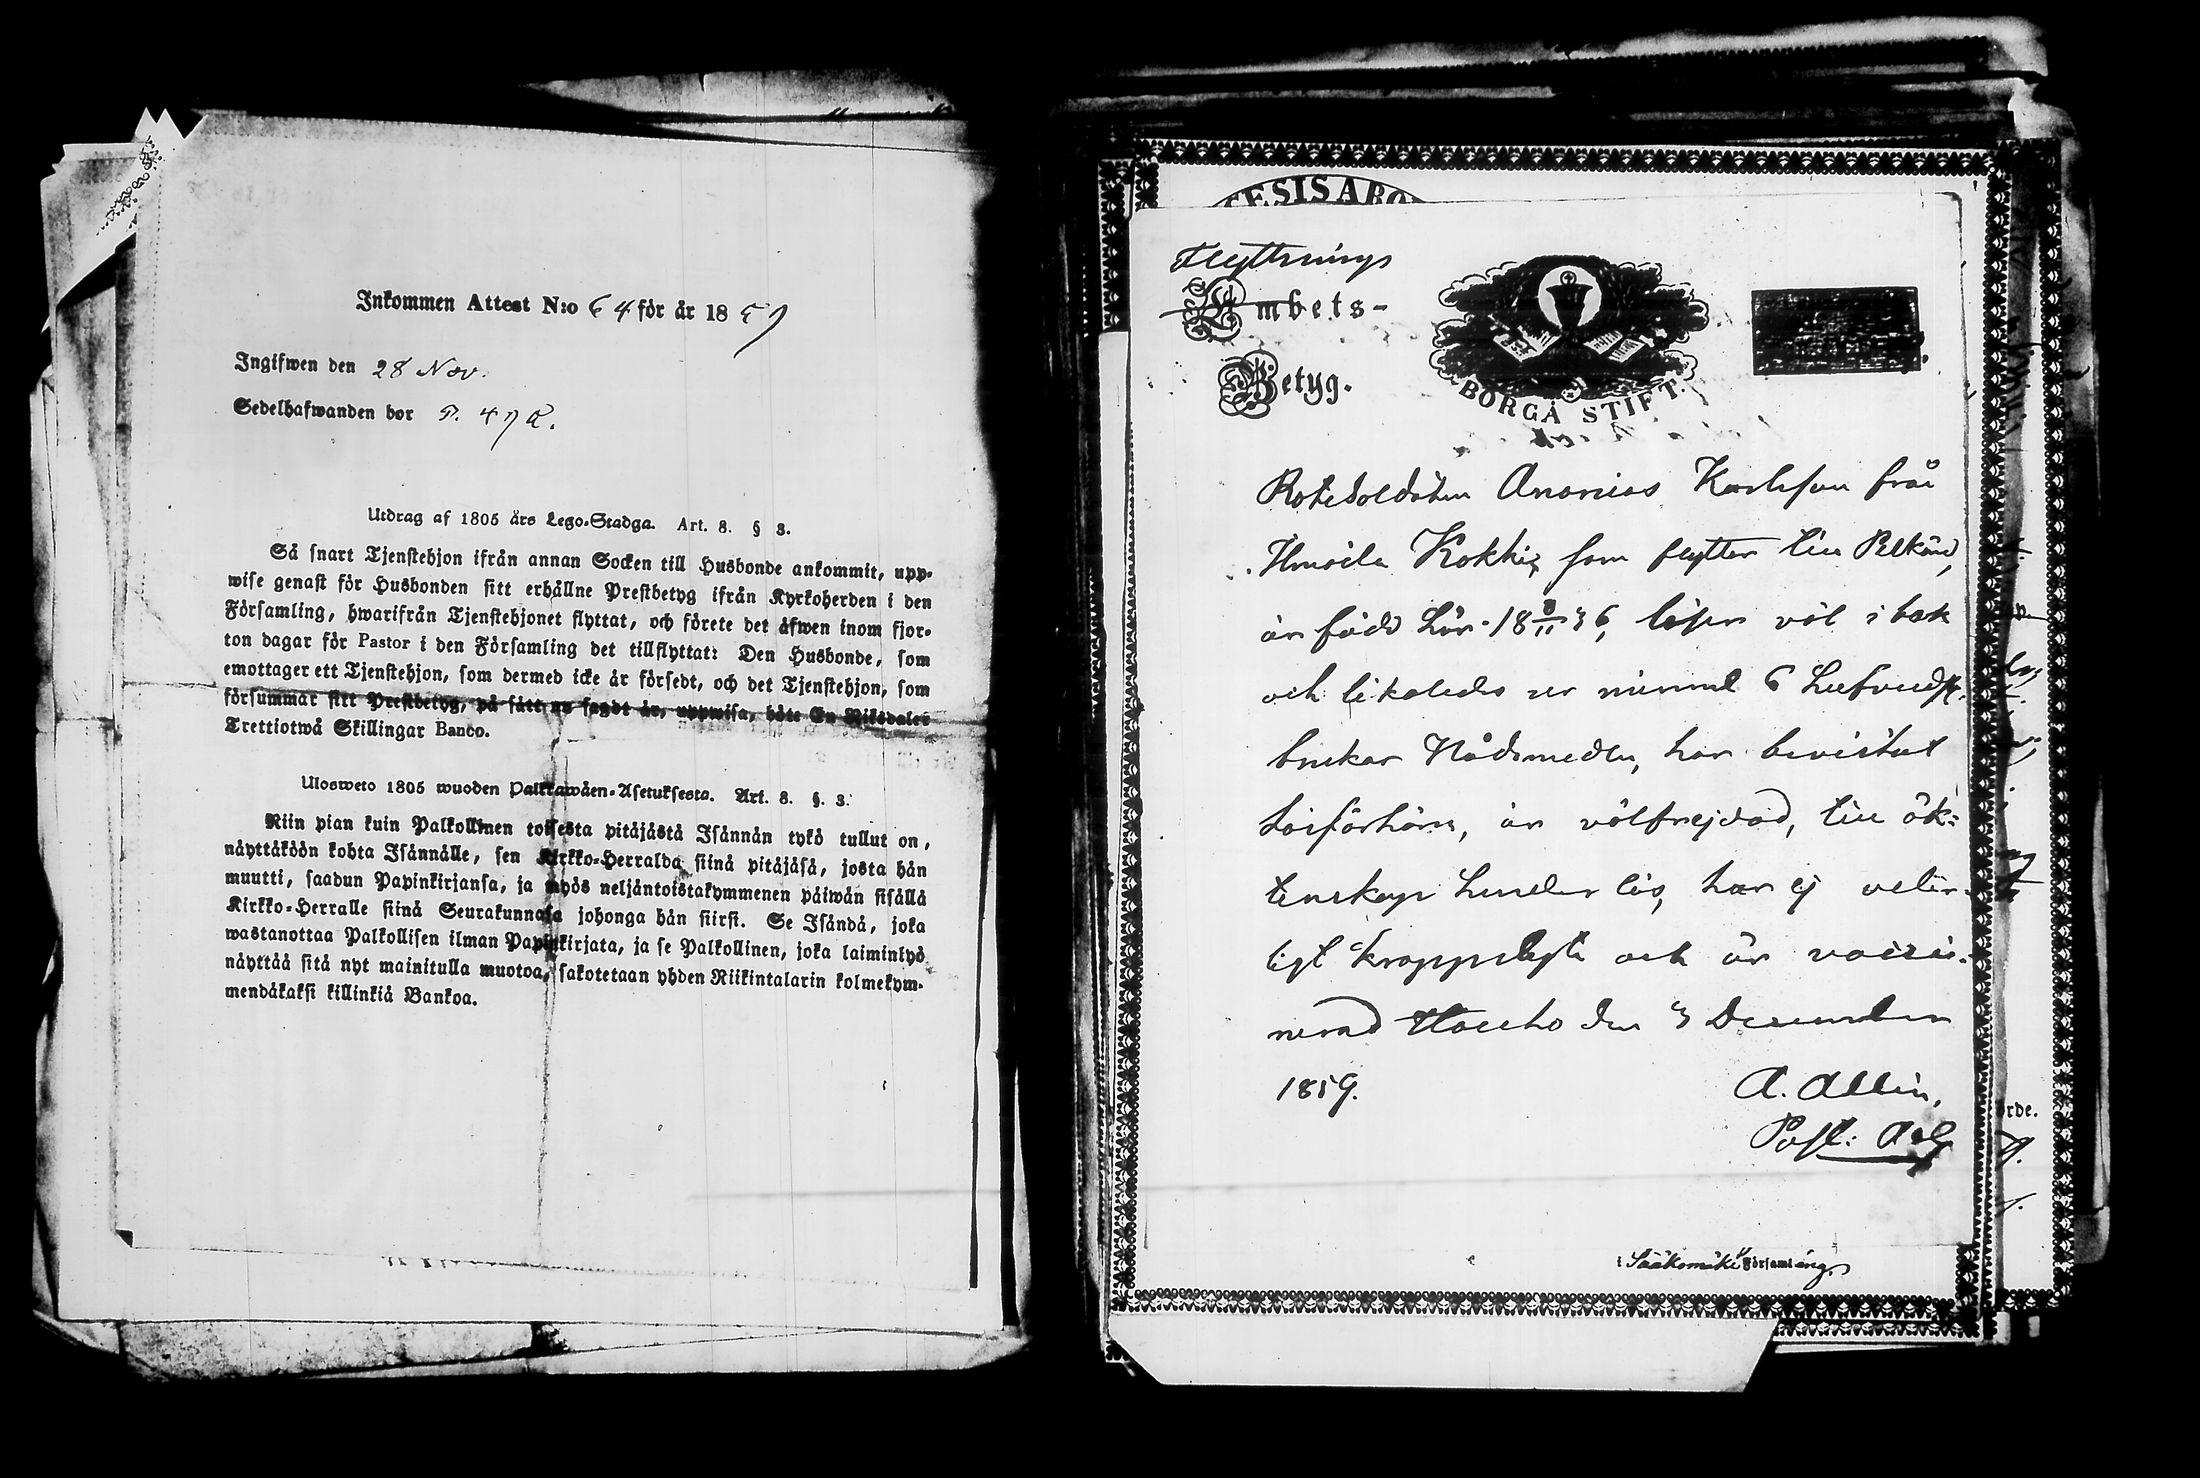 Inkommen Attest N:o 64 för år 1857
Ingifwen den 28 Nov.
Sedelhafwanden bor P. 47 R.
Utdrag af 1805 års Lego-Stadga. Art. 8. § 3.
Så snart Tjenstehjon ifrån annan Socken till Husbonde ankommit, upp-
wise genast för Husbonden sitt erhållne Prestbetyg ifrån Kyrkoherden i den
Församling, hwarifrån Tjenstehjonet flyttat, och förete det äfwen inom fjor-
ton dagar för Pastor i den Församling det tillflyttat: Den Husbonde, som
emottager ett Tjenstehjon, som dermed icke är försedt, och det Tjenstehjon, som
försummar sitt Prestbetyg, på sätt nu sagdt är, uppwisa, böte En Riksdaler
Trettiotwå Skillingar Banco.
Ulosweto 1805 wuoden Palkkawäen-Asetuksesta. Art. 8. §. 3.
Niin pian kuin Palkollinen toisesta pitäjästä Isännän tykö tullut on,
näyttäköön kohta Isännälle, sen Kirkko-Herralda siinä pitäjäsä, josta hän
muutti, saadun Papinkirjansa, ja myös neljäntoistakymmenen päiwän sisällä
Kirkko-Herralle siinä Seurakunnasa johonga hän siirsi. Se Isändä, joka
wastanottaa Palkollisen ilman Papinkirjata, ja se Palkollinen, joka laiminlyö
näyttää sitä nyt mainitulla muotoa, sakotetaan yhden Riikintalarin kolmekym-
mendäkaksi killinkiä Bankoa.
ESIS ABO
Flyttnings
Embets-
Betyg.
BORGÅ STIFT.
Rotesoldaten Ananias Karlsson från
Ilmoila Kokkis, som flyttar till Pelkäne,
är född här 18 8/11 36, läser väl i bok
och likaledes ur minnet 6 Hufvudst.
brukar Nådemedlen, har bevistat
läsförhören, är välfrejdad, till äk-
tenskap hinderlös, har ej veter-
ligt kroppslyte och är vacci-
nerad Hauho den 3 December
1859.
A. Allén,
Past: Adj
i Sääksmäki Församling.
rde.